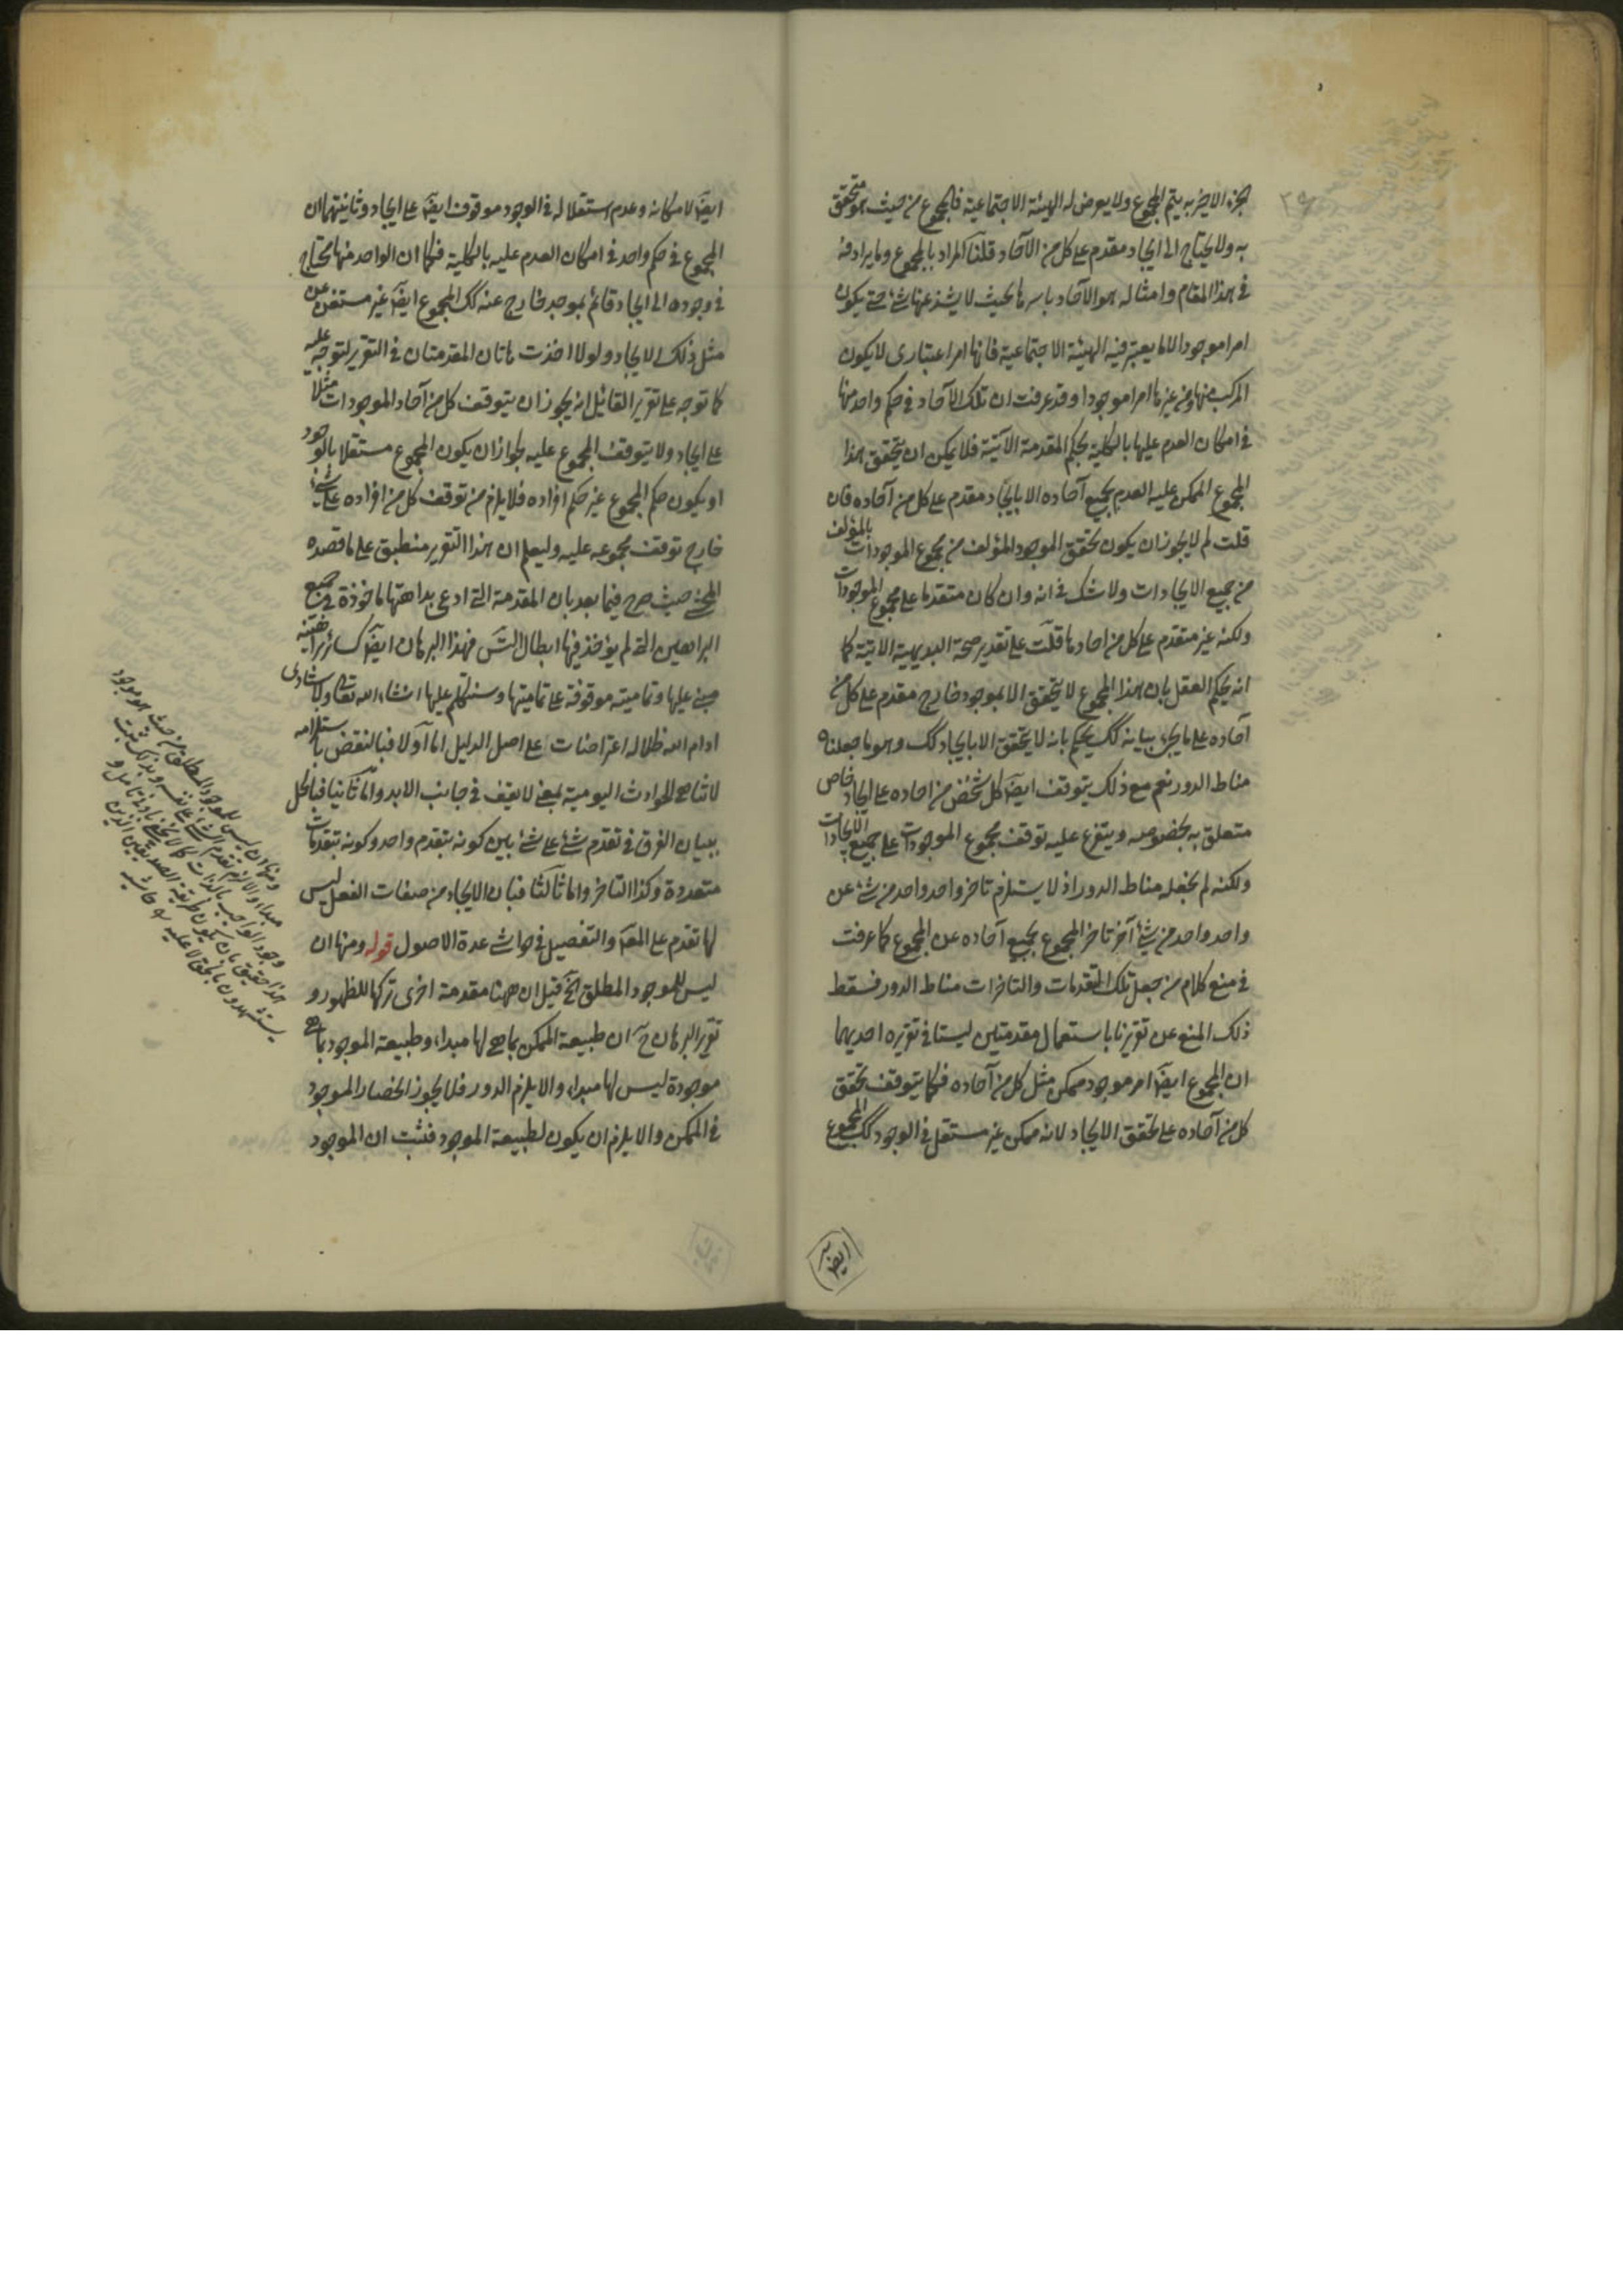 الجزء الاخير به يتم المجموع ولا يعرض له الهيئة الاجتماعية فالمجموع من حيث هو متحقق
به ولا يحتاج الى ايجاد مقدم على كل من الآحاد قلنا المراد بالمجموع وما يرادفه
فى هذا المقام وامثاله هو الآحاد باسرها بحيث لا يشذ عنها شئ حتى يكون
امرا موجودا لا ما يعتبر فيه الهيئة الاجتماعية فانها امر اعتبارى لا يكون
المركب منها ومن غيرها امرا موجودا وقد عرفت ان تلك الآحاد فى حكم واحد منها
فى امكان العدم عليها بالكلية بحكم المقدمة الآتية فلا يمكن ان يتحقق هذا
المجموع الممكن عليه العدم بجميع آحاده الا بايجاد مقدم على كل من آحاده فان
قلت لم لا يجوز ان يكون تحقق الموجود المؤلف من مجموع الموجودات بالمؤلف
من جميع الايجادات ولا شك فى انه وان كان متقدما على مجموع الموجودات
ولكنه غير متقدم على كل من احادها قلت على تقدير صحة البديهية الاتية كما
انه يحكم العقل بان هذا المجموع لا يتحقق الا بموجود خارج مقدم على كل من
آحاده على ما يجئ بيانه كك يحكم بانه لا يتحقق الا بايجاد كك وهو ما جعلناه
مناط الدور نعم مع ذلك يتوقف ايضا كل شخص من احاده على ايجاد خاص
متعلق به بخصوصه ويتفرع عليه توقف مجموع الموجودات على جميع الايجادات
ولكنه لم نجعله مناط الدور اذ لا يستلزم تاخر واحد واحد من شئ عن
واحد واحد من شئ آخر تاخر المجموع بجميع آحاده عن المجموع كما عرفت
فى منع كلام من جعل تلك التقدمات والتاخرات مناط الدور فسقط
ذلك المنع عن تقريرنا باستعمال مقدمتين ليستا فى تقريره احديهما
ان المجموع ايضا امر موجود ممكن مثل كل من آحاده فكما يتوقف تحقق
كل من آحاده على تحقق الايجاد لانه ممكن غير مستقل فى الوجود كك المجموع
ايضا
ايضا لامكانه وعدم استقلاله فى الوجود موقوف ايضا على ايجاد وثانيتهما ان
المجموع فى حكم واحد فى امكان العدم عليه بالكلية فكما ان الواحد منها محتاج
فى وجوده الى ايجاد قائم بموجد خارج عنه كك المجموع ايضا غير مستغن عن
مثل ذلك الايجاد ولولا اخذت هاتان المقدمتان فى التقرير لتوجه عليه
كما توجه على تقرير القائل انه يجوز ان يتوقف كل من آحاد الموجودات مثلا
على ايجاد ولا يتوقف المجموع عليه لجواز ان يكون المجموع مستقلا بالوجود
او يكون حكم المجموع غير حكم افراده فلا يلزم من توقف كل من افراده على شئ
خارج توقف مجموعه عليه وليعلم ان هذا التقرير منطبق على ما قصده
المحشى حيث صرح فيما بعد بان المقدمة التى ادعى بداهتها ماخوذة فى جميع
البراهين التى لم يؤخذ فيها ابطال التس فهذا البرهان ايضا كسائر براهينه
مبنى عليها وتماميته موقوفة على تماميتها وسنتكلم عليها انشاء الله تعالى ولاستادى
ادام الله ظلاله اعتراضات على اصل الدليل اما اولا فبالنقض باستلزامه
لاتناهى الحوادث اليومية بمعنى لا يقف فى جانب الابد واما ثانيا فبالحل
ببيان الفرق فى تقدم شئ على شئ بين كونه بتقدم واحد وكونه بتقدمات
متعددة وكذا التاخر واما ثالثا فبان الايجاد من صفات الفعل ليس
لها تقدم على المقد والتفصيل فى حواشى عدة الاصول قوله ومنها ان
ليس للموجود المطلق الخ قيل ان ههنا مقدمة اخرى تركها للظهور و
تقرير البرهان ح ان طبيعة الممكن بما هى لها مبداء وطبيعة الموجود بما هى
موجودة ليس لها مبداء والا يلزم الدور فلا يجوز انحصار الموجود
فى الممكن والا يلزم ان يكون لطبيعة الموجود فثبت ان الموجود
ومنها ان ليس للموجود المطلق من حيث هو موجود
مبداء والا لزم تقدم الشئ على نفسه وبذلك يثبت
وجود الواجب بالذات كما لا يخفى بادنى تامل و
هذا حقيق بان يكون طريقة الصديقين الذين
يستشهدون بالحق لا عليه